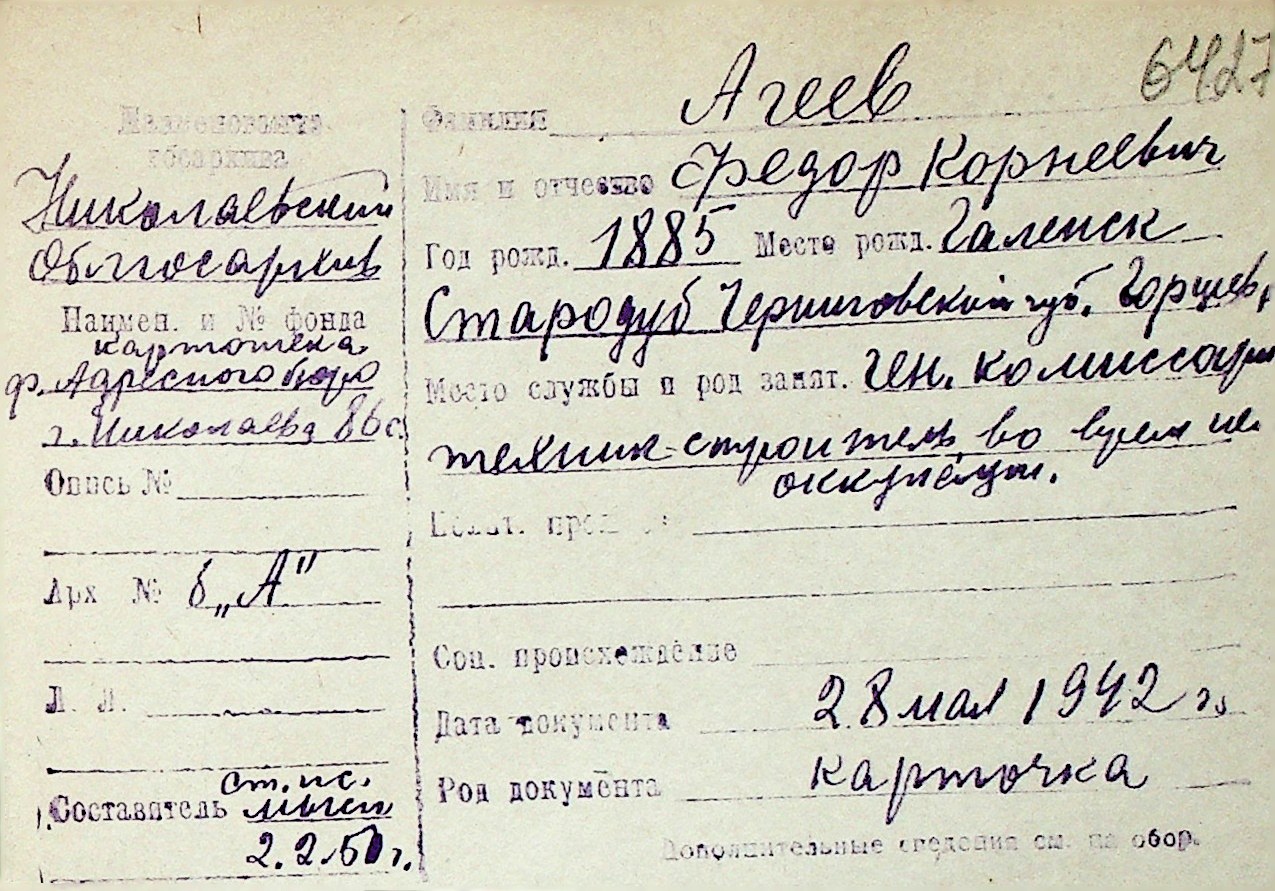 6427
Наименование
облархива
Николаевский
Облгосархив
Наимен. и № фонда
картотека
ф. Адресного бюро
г. Николаева 86 с
Опись №
Арх № б „А"
Л. Л.
ст. ис.
Составитель
2.2.50 г.
Фамилия Агеев
Имя и отчество Федор Корнеевич
Год рожд. 1885 Место рожд. Галенск
Стародуб Черниговской губ.
Место службы и род занят. Ген. комиссари
техник-строитель во время не
оккупации.
Полит. про
Соц. происхождение
Дата документа 28 мая 1942 г.
Род документа карточка
Дополнительные сведения см. на обор.